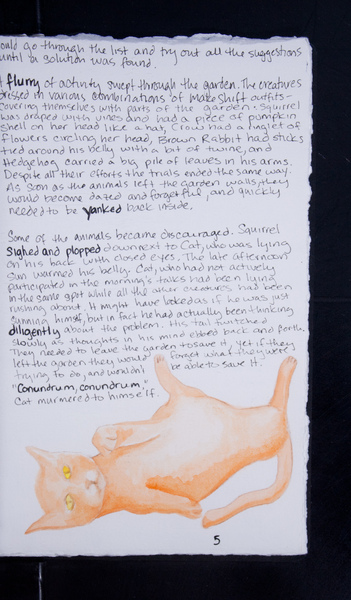 ould go through the list and try out all the suggestions
until a solution was found.
A flurry of activity swept through the garden. The creatures
dressed in various combinations of makeshift outfits-
covering themselves with parts of the garden. Squirrel
was draped with vines and had a piece of pumpkin
shell on her head like a hat, Crow had a ringlet of
flowers circling her head, Brown Rabbit had sticks
tied around his belly with a bit of twine, and
Hedgehog carried a big pile of leaves in his arms.
Despite all their efforts the trials ended the same way.
As soon as the animals left the garden walls, they
would become dazed and forgetful, and quickly
needed to be yanked back inside.
Some of the animals became discouraged. Squirrel
sighed and plopped down next to Cat, who was lying
on his back with closed eyes. The late afternoon
sun warmed his belly. Cat, who had not actively
participated in the morning's talks had been lying
in the same spot while all the other creatures had been
rushing about. It might have looked as if he was just
sunning himself, but in fact he had actually been thinking
diligently about the problem. His tail twitched
slowly as thoughts in his mind ebbed back and forth.
They needed to leave the garden to save it, yet if they
left the garden they would forget what they were
trying to do, and wouldn't be able to save it.
"Conundrum, conundrum,"
Cat murmered to himself.
5